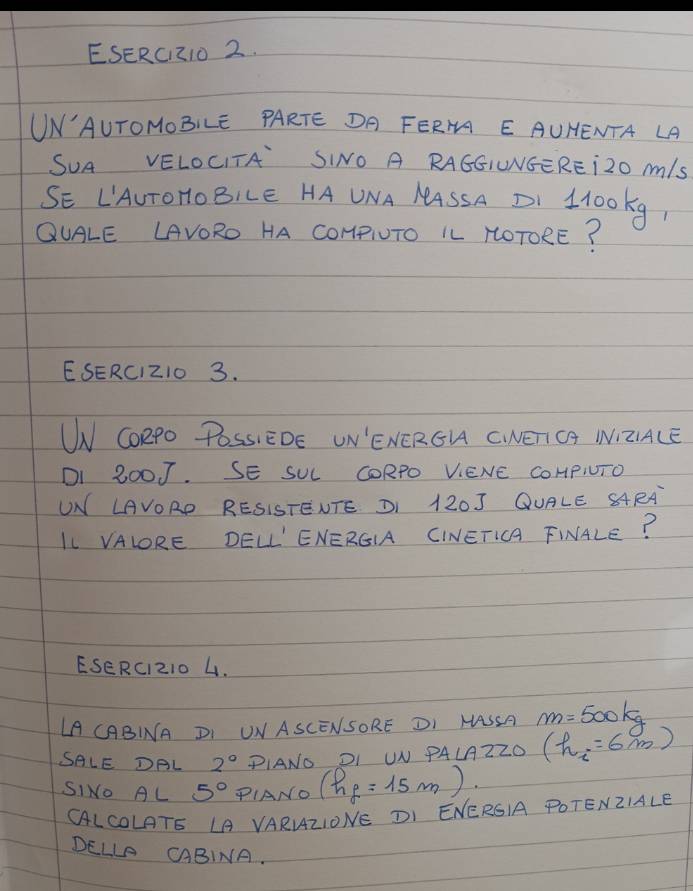 ESERCIZIO 2.
UN'AUTOMOBILE PARTE DA FERMA E AUMENTA LA
SUA VELOCITÀ SINO A RAGGIUNGERE i 20 m/s.
SE L'AUTOMOBILE HA UNA MASSA DI 1100 kg,
QUALE LAVORO HA COMPIUTO IL MOTORE?
ESERCIZIO 3.
UN CORPO POSSIEDE UN'ENERGIA CINETICA INIZIALE
DI 200J. SE SUL CORPO VIENE COMPIUTO
UN LAVORO RESISTENTE DI 120J QUALE SARÀ
IL VALORE DELL'ENERGIA CINETICA FINALE?
ESERCIZIO 4.
LA CABINA DI UN ASCENSORE DI MASSA m=500kg
SALE DAL 2° PIANO DI UN PALAZZO (hi=6m)
SINO AL 5° PIANO (hf=15m).
CALCOLATE LA VARIAZIONE DI ENERGIA POTENZIALE
DELLA CABINA.